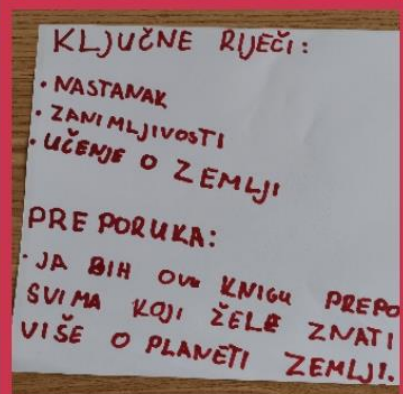 KLJUČNE RIJEČI:
• NASTANAK
• ZANIMLJIVOSTI
• UČENJE O ZEMLJI
PREPORUKA:
• JA BIH OVU KNIGU PREPO
SVIMA KOJI ŽELE ZNATI
VIŠE O PLANETI ZEMLJI.